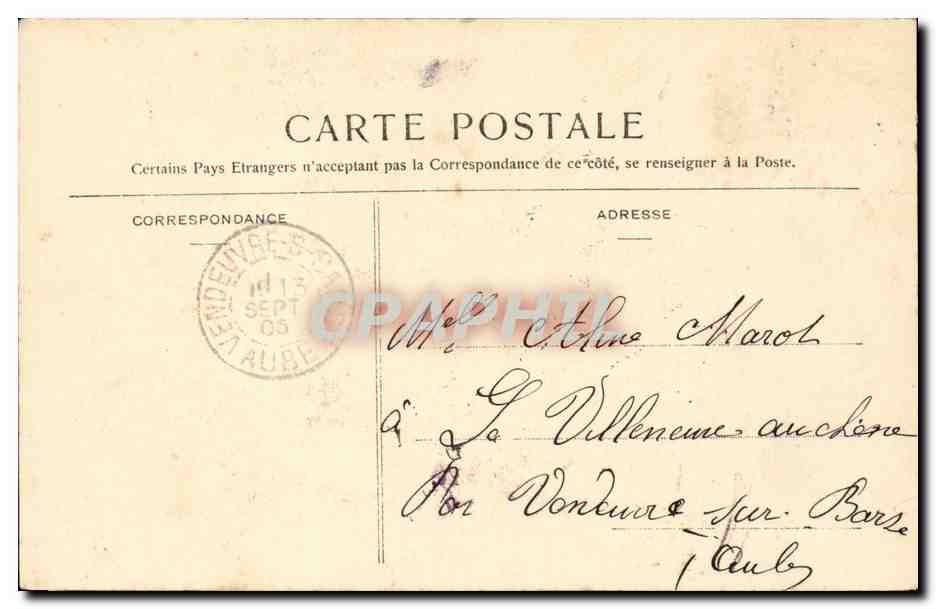 CARTE POSTALE
Certains Pays Etrangers n'acceptant pas la Correspondance de ce côté, se renseigner à la Poste.
CORRESPONDANCE
ADRESSE
VENDEUVRE-S-BA
13
SEPT
05
AUBE
CPAPHIL
Mlle Aline Marot
à La Villeneuve au chêne
Par Vendeuvre sur Barse
(Aube)